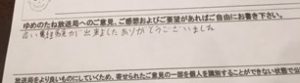 ゆめのたね放送局へのご意見、ご感想およびご要望があればご自由にお書き下さい。
良い経験が出来ましたありがとうございました
放送をより良いものにしていくため、寄せられたご意見の一部を個人を識別することができない状態で